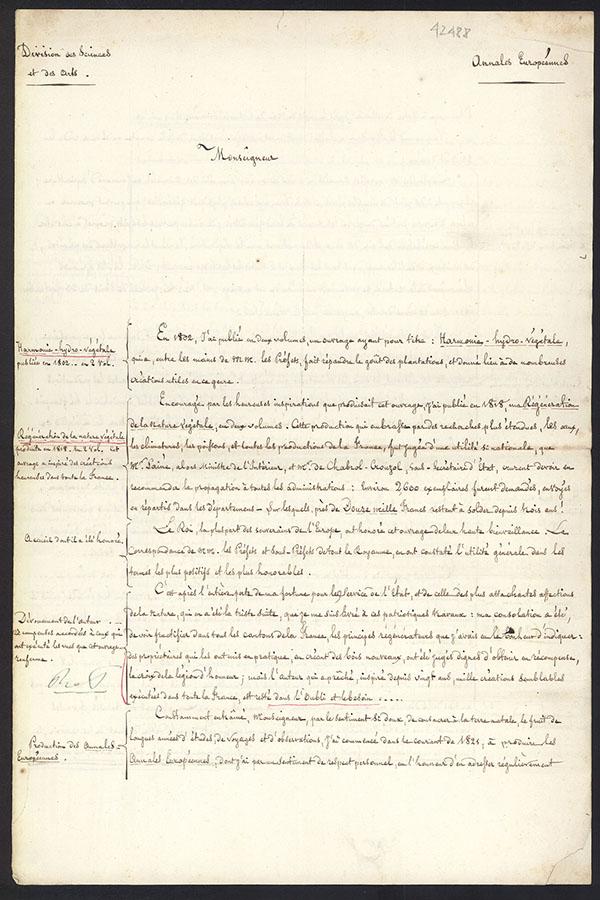 42488
Division des Sciences
et des Arts.
Annales Européennes
Monseigneur
Harmonie-hydro-végétale
publiée en 1802. en 2 Vol.
En 1802, J'ai publié en deux volumes, un ouvrage ayant pour titre : Harmonie-hydro-végétale,
qui a, entre les mains de MM. les Préfets, fait répandre le goût des plantations, et donné lieu à de nombreuses
créations utiles en ce genre.
Régénération de la nature végétale
produite en 1818. en 2 Vol. cet
ouvrage a inspiré des créations
heureuses dans toute la France.
Encouragé par les heureuses inspirations que produisait cet ouvrage, J'ai publié en 1818, ma Régénération
de la Nature végétale, en deux volumes. Cette production qui embrasse par des recherches plus étendues, les eaux,
les climatures, les poissons, et toutes les productions de la France, fut jugée d'une utilité si nationale, que
M. Lainé, alors Ministre de l'Intérieur, et Mr. de Chabrol-Crouzol, Sous-Secrétaire d'État, crurent devoir en
recommander la propagation à toutes les administrations : Environ 2600 exemplaires furent demandés, envoyés
et répartis dans les départements - sur lesquels, près de Douze mille francs restent à solder depuis trois ans !
Accueil dont il a été honoré.
Le Roi, la plupart des souverains de l'Europe, ont honoré cet ouvrage de leur haute bienveillance. La
Correspondance de MM. les Préfets et Sous-Préfets de tout le Royaume, en ont constaté l'utilité générale dans les
formes les plus positifs et les plus honorables.
Dévouement de l'auteur.
Récompenses accordées à ceux qui
ont exécuté les vues que cet ouvrage
renferme.
C'est après l'entière perte de ma fortune pour le service de l'État, et de celle des plus attachantes affections
de la Nature, qui en a été la triste suite, que je me suis livré à ces patriotiques travaux : ma consolation a été,
de voir fructifier dans tous les cantons de la France, les principes régénérateurs que j'avais eu le bonheur d'indiquer :
des propriétaires qui les ont mis en pratique, en créant des bois nouveaux, ont été jugés dignes d'obtenir en récompense,
la croix de la légion d'honneur ; mais l'auteur qui a prêché, inspiré depuis vingt ans, mille créations semblables
exécutées dans toute la France, est resté dans l'oubli et le besoin .....
Production des Annales
Européennes.
Constamment entraîné, Monseigneur, par le sentiment si doux, de consacrer à la terre natale, le fruit de
longues années d'études, de voyages et d'observations, J'ai commencé dans le courant de 1821, à produire les
Annales Européennes, dont j'ai par un sentiment de respect personnel, eu l'honneur d'en adresser régulièrement